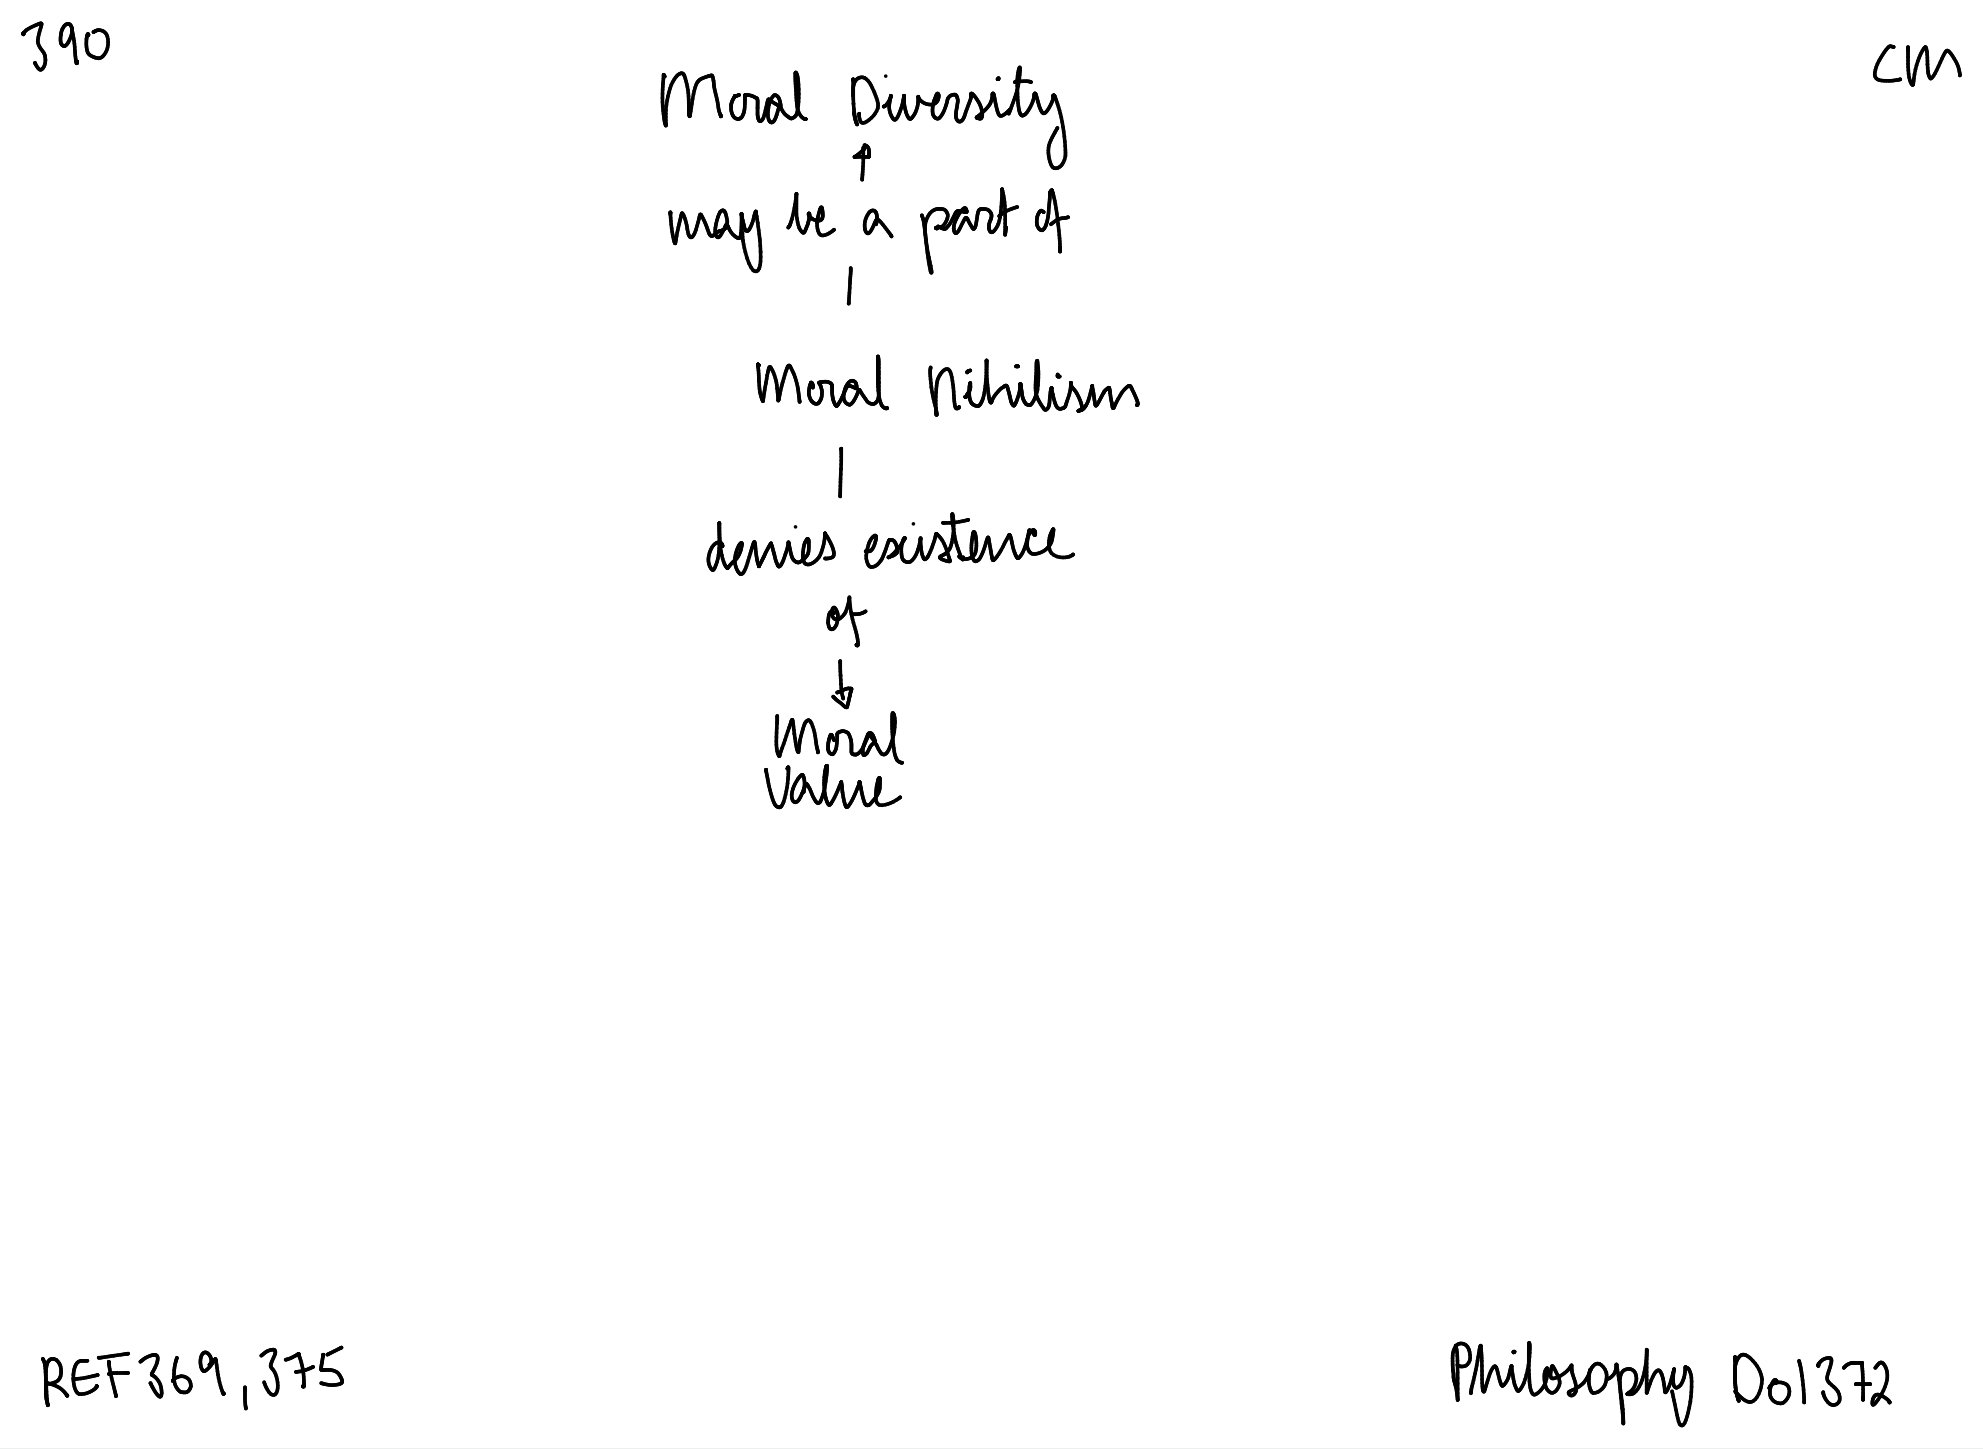 390
CM
Moral Diversity
may be a part of
Moral Nihilism
denies existence
of
Moral
Value
REF369,375
Philosophy D01372